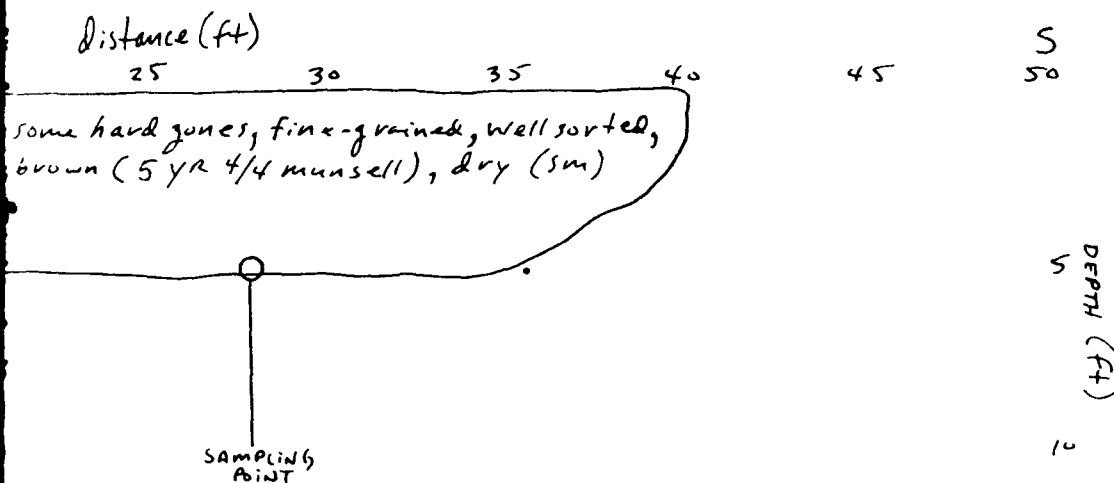 Distance (ft)
S
25 30 35 40 45 50
some hard zones, fine-grained, well sorted,
brown (5 YR 4/4 munsell), dry (sm)
5
DEPTH (ft)
10
SAMPLING
POINT